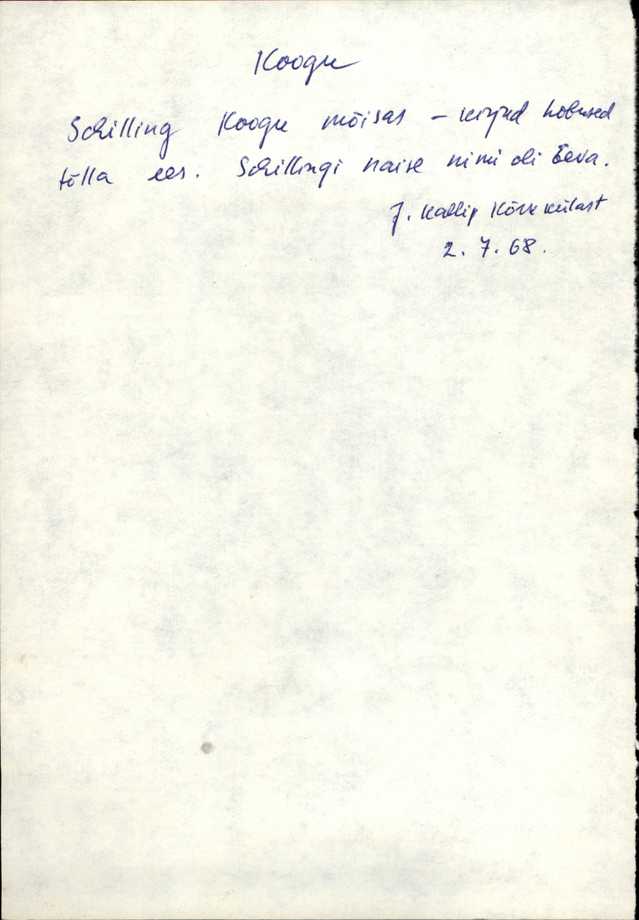 Koogu
Schilling Koogu mõisas – kirjud hobused
tõlla ees. Schillingi naise nimi oli Eeva.
J. Kallip Kõrvekülast
2. 7. 68.